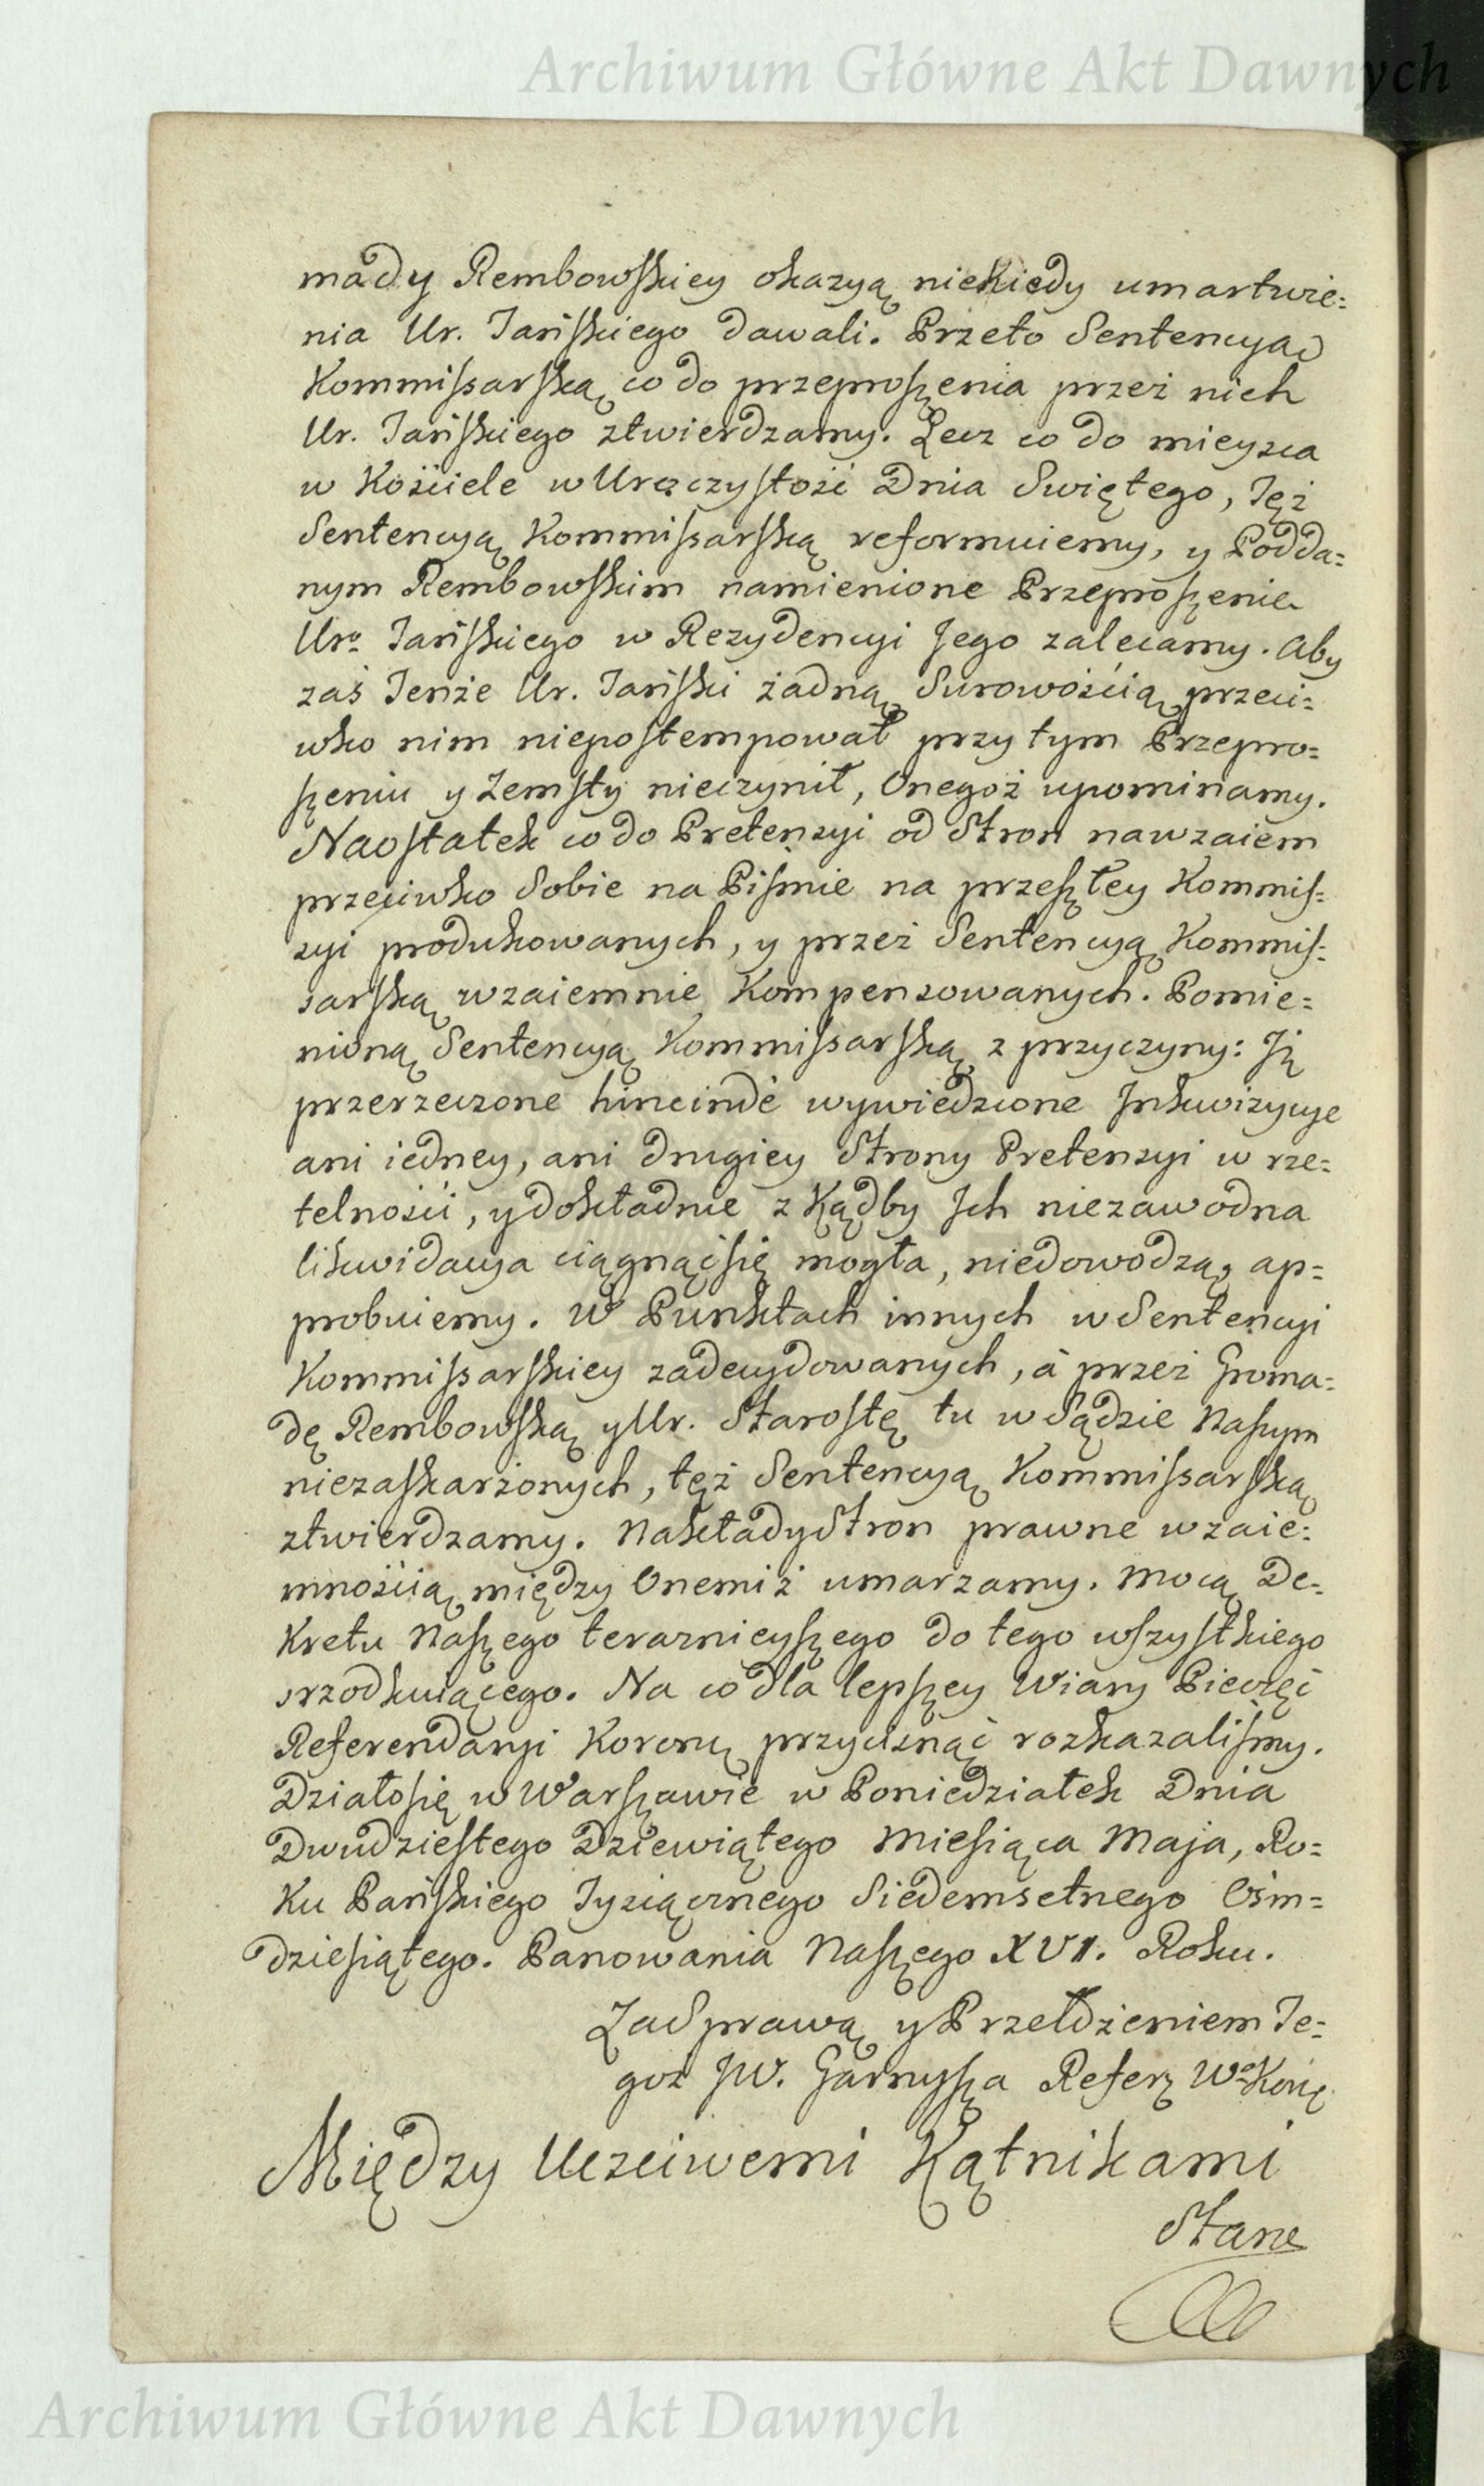 Archiwum Główne Akt Dawnych
mady Rembowskiey okazyą niekiedy umartwie=
nia Ur. Jańskiego dawali. Przeto Sentencyą
Kommissarską co do przeproszenia przez nich
Ur. Jańskiego ztwierdzamy. Lecz co do mieysca
w Kościele w Uroczystość Dnia Swiętego, Tęż
Sentencyą Kommissarską reformuiemy, y Podda=
nym Rembowskim namienione Przeproszenie
Urº Jańskiego w Rezydencyi Jego zalecamy. Aby
zaś Tenże Ur. Jański żadną Surowością przeci=
wko nim niepostempował przy tym Przepro=
szeniu y Zemsty nieczynił, Onegoż upominamy.
Naostatek co do Pretensyi od Stron nawzaiem
przeciwko Sobie na Piśmie na przeszłey Kommis=
syi produkowanych, y przez Sentencyą Kommis=
sarską wzaiemnie Kompensowanych. Pomie=
nioną Sentencyą Kommissarską z przyczyny: Jż
przerzeczone hincindè wywiedzione Jnkwizycye
ani iedney, ani drugiey Strony Pretensyi w rze=
telności, y dokładnie z kądby Jch niezawodna
likwidacya ciągnąć się mogła, niedowodzą, ap=
probuiemy. W Punktach innych w Sentencyi
Kommissarskiey zadecydowanych, à przez Groma=
dę Rembowską y Ur. Starostę tu w Sądzie Naszym
niezaskarżonych, tęż Sentencyą Kommissarską
ztwierdzamy. Nakłady Stron prawne wzaie=
mnością między Onemiż umarzamy. Mocą De=
Kretu Naszego teraznieyszego do tego wszystkiego
srzodkuiącego. Na co dla lepszey Wiary Pieczęć
Referendaryi Koronų przycisnąć rozkazaliśmy.
Działo się w Warszawie w Poniedziałek Dnia
Dwudziestego Dziewiątego Miesiąca Maja, Ro=
Ku Pańskiego Tysiącznego Siedemsetnego Ośm=
dziesiątego. Panowania Naszego XVI. Roku.
Za Sprawą y Przełożeniem Te=
goż JW. Garnysza Referę Wº Korę
Między Uczciwemi Kątnikami
Stane
Archiwum Główne Akt Dawnych